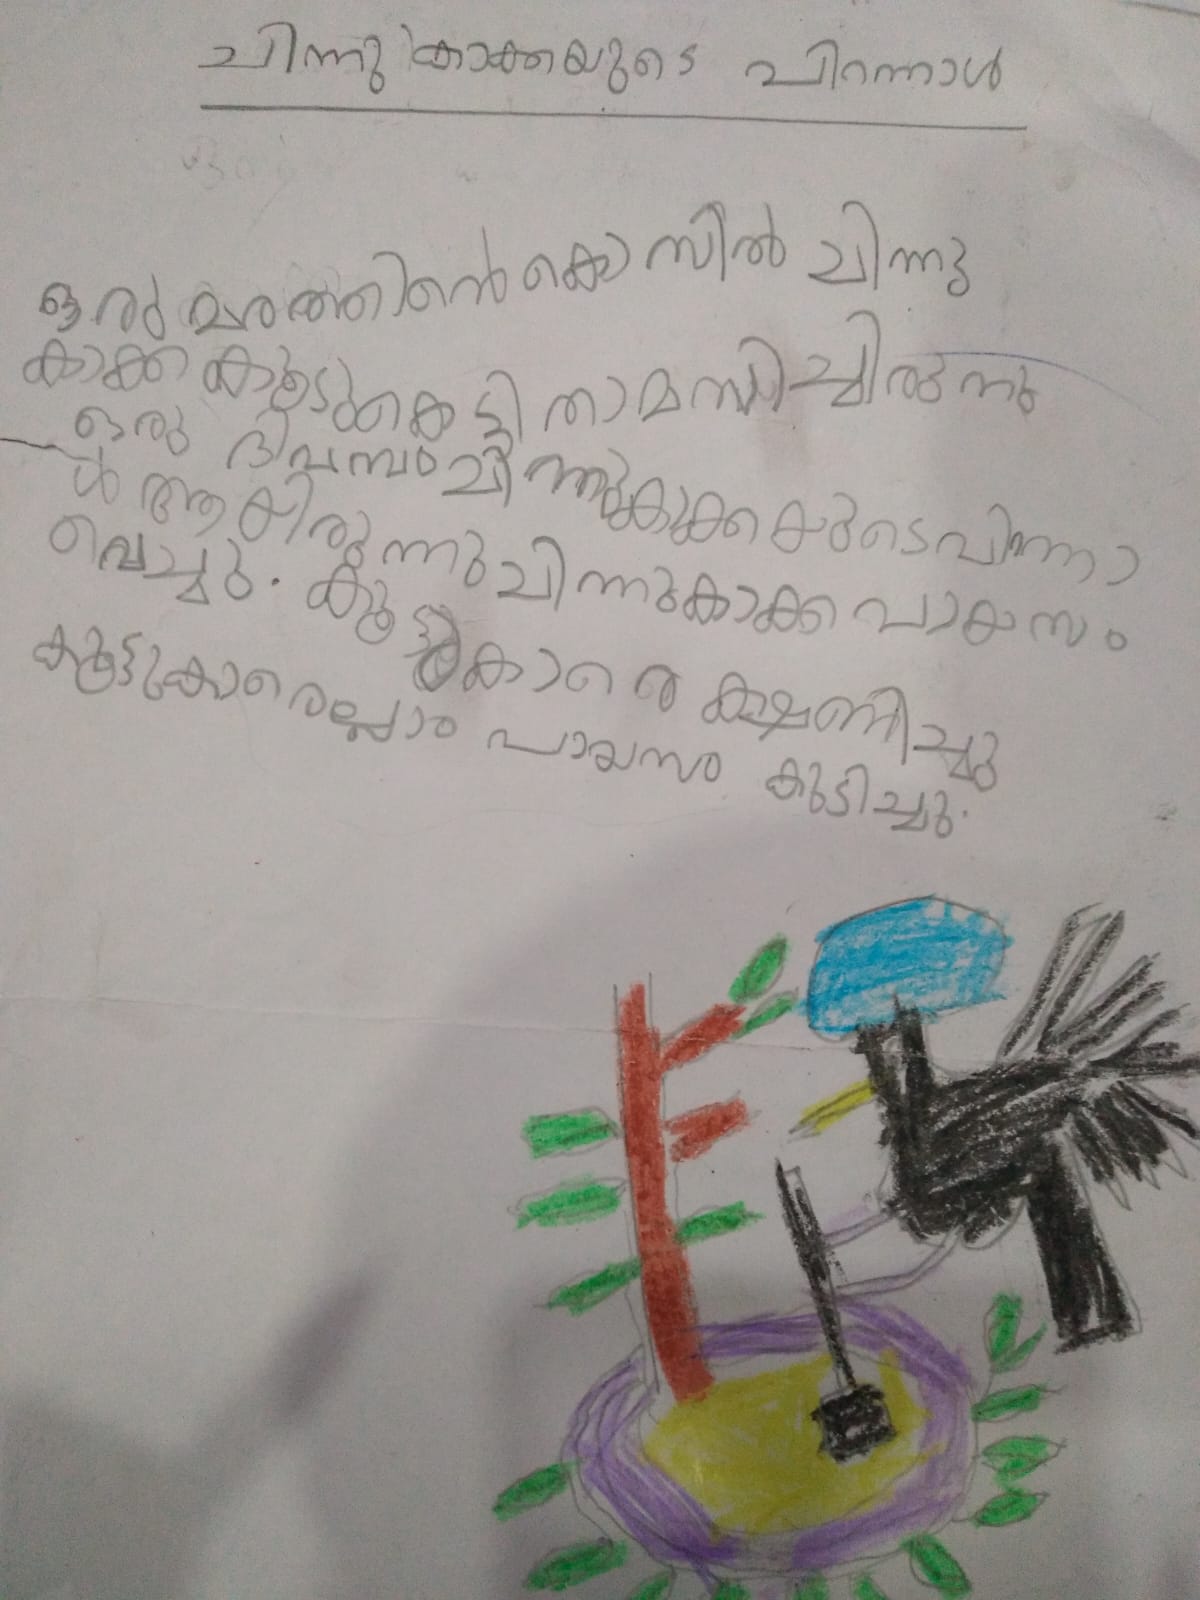 ചിന്നു കാക്കയുടെ പിറന്നാൾ
ഒരു മരത്തിന്റെ കൊമ്പിൽ ചിന്നു
കാക്ക കൂടുകെട്ടി താമസിച്ചിരുന്നു
ഒരു ദിവസം ചിന്നുകാക്കയുടെ പിറന്നാ
ൾ ആയിരുന്നു ചിന്നുകാക്ക പായസം
വെച്ചു. കൂട്ടുകാരെ ക്ഷണിച്ചു
കൂട്ടുകാരെല്ലാം പായസം കുടിച്ചു.